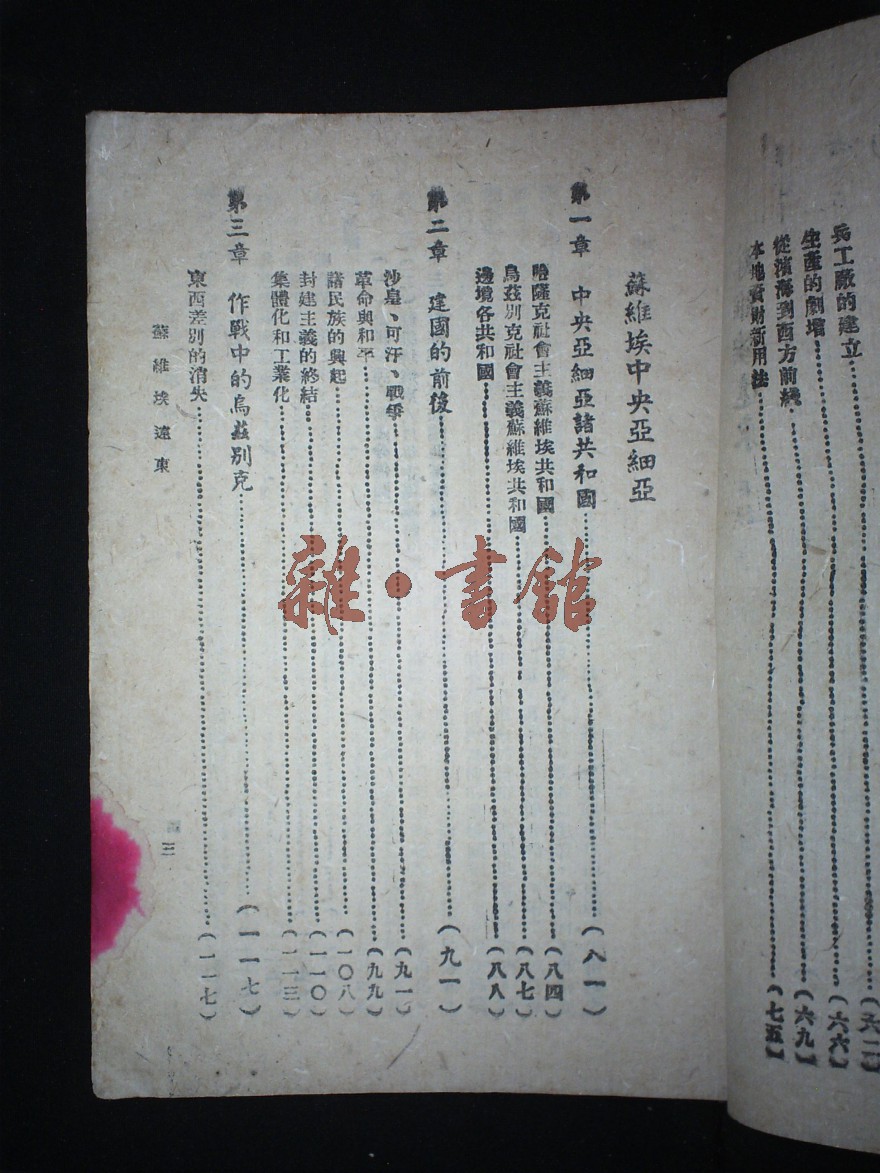 兵工廠的建立……（六二）
生產的劇增……（六六）
從濱海到西方前綫……（六九）
本地資財新用法……（七五）
蘇維埃中央亞細亞
第一章 中央亞細亞諸共和國……（八一）
哈薩克社會主義蘇維埃共和國……（八四）
烏茲別克社會主義蘇維埃共和國……（八七）
邊境各共和國……（八八）
第二章 建國的前後……（九一）
沙皇、可汗、戰爭……（九一）
革命與和平……（九九）
諸民族的興起……（一〇八）
封建主義的終結……（一一〇）
集體化和工業化……（一一三）
第三章 作戰中的烏茲別克……（一一七）
東西差別的消失……（一一七）
蘇維埃遠東
三
雜·書館